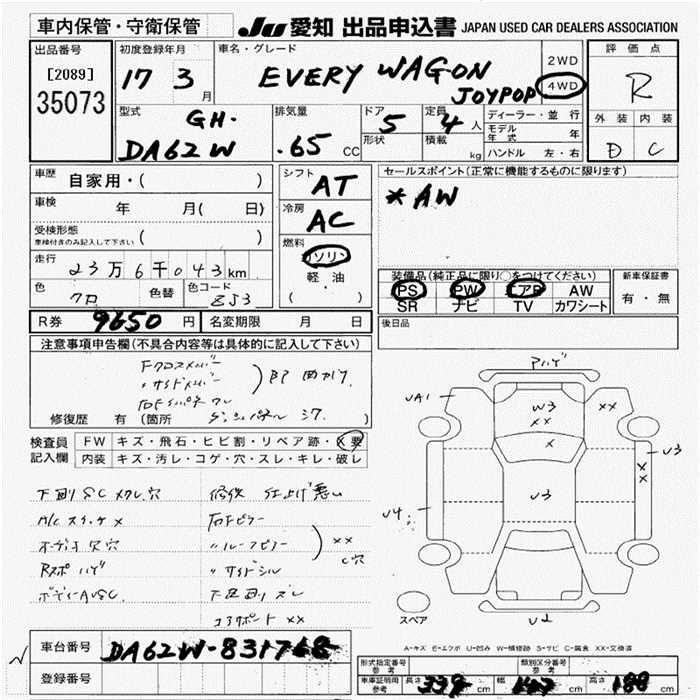 車内保管・守衛保管
JU 愛知 出品申込書 JAPAN USED CAR DEALERS ASSOCIATION
出品番号
[2089]
35073
初度登録年月
17 3 月
車名・グレード
EVERY WAGON
JOYPOP
2WD
4WD
評価点
R
型式
GH-
DA62W
排気量
.65 CC
ドア 5
形状
定員 4 人
積載 kg
ディーラー・並行
モデル年式 年
ハンドル 左・右
外装 内装
D C
車歴 自家用・( )
車検 年 月( 日)
受検形態
車検付きのみ記入して下さい ( )
走行
23万6千043km
色 クロ 色替 色コード ZJ3
シフト AT
冷房 AC
燃料
ガソリン
軽・油
( ・ )
セールスポイント(正常に機能するものに限ります)
*AW
装備品(純正品に限り○をつけてください)
PS PW エアB AW
SR ナビ TV カワシート
新車保証書
有・無
後日品
R券 9650 円 名変期限 月 日
注意事項申告欄(不具合内容等は具体的に記入して下さい)
Fクロスメンバー
〃サイドメンバー
修復歴 有 (箇所
検査員
記入欄
FW キズ・飛石・ヒビ割・リペア跡・X要
内装 キズ・汚レ・コゲ・穴・スレ・キレ・破レ
下回りSC メクレ穴 修復 仕上げ悪い
A/C スイッチ × 右Fピラー
オーディオ欠穴 〃ルーフピラー
××
C穴
Rスポ ハゲ 〃サイドシル
ボディーAUSC. 下廻りズレ
コアサポート ××
アハゲ
UA1
W3
××
××
×
U3
×
×
U4
U3
U2
スペア
A-キズ E-エクボ U-凹み W-補修跡 S-サビ C-腐食 XX-交換済
車台番号 DA62W-831768
登録番号
形式指定番号
参考
類別区分番号
参考
車庫証明用
参考
長さ 339 cm 幅 147 cm 高さ 188 cm